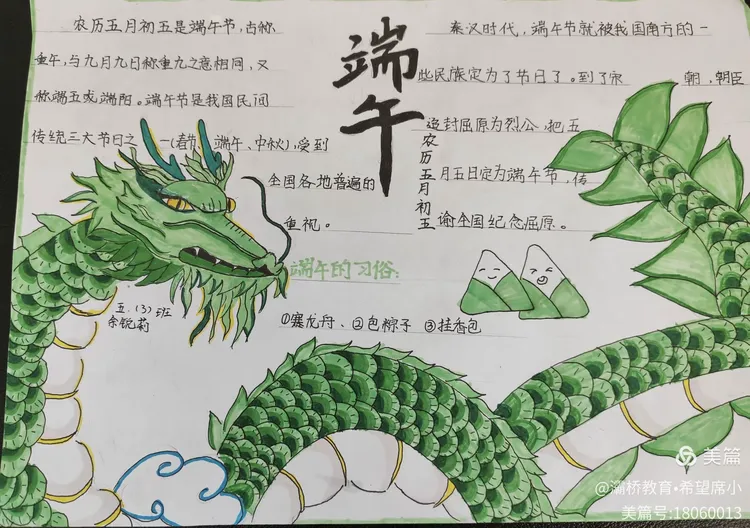 农历五月初五是端午节，古称
重午，与九月九日称重九之意相同，又
称端五或端阳。端午节是我国民间
传统三大节日之一(春节、端午、中秋)，受到
全国各地普遍的
重视。
端午
农历五月初五
秦汉时代，端午节就被我国南方的一
些民族定为了节日了。到了宋朝，朝臣
追封屈原为烈公，把五
月五日定为端午节，传
谕全国纪念屈原。
端午的习俗：
①赛龙舟、②包粽子 ③挂香包
五.(3)班
余锐莉
美篇
@灞桥教育•希望席小
美篇号:18060013